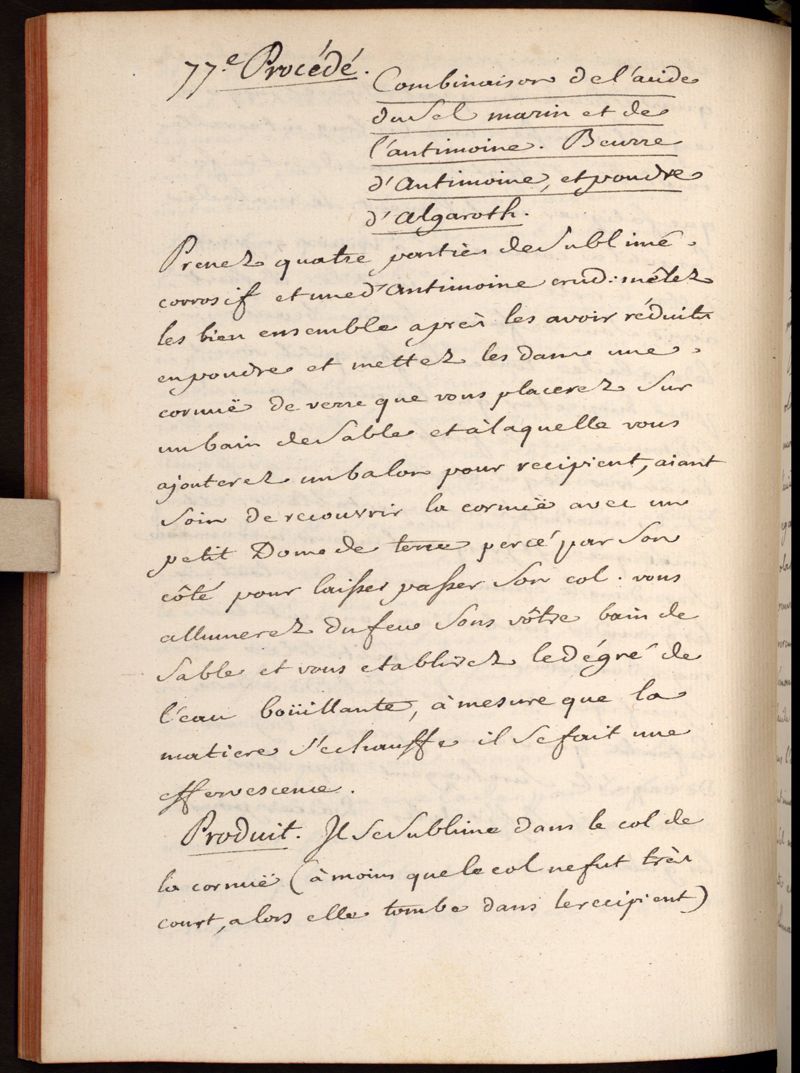 77.e Procédé.
Combinaison de l'acide
du Sel marin et de
l'antimoine. Beurre
d'Antimoine, et poudre
d'Algaroth.
Prenez quatre parties de Sublimé
corrosif et une d'Antimoine crud: mêlez
les bien ensemble après les avoir réduits
en poudre et mettez les dans une
cornuë de verre que vous placerez sur
un bain de Sable et à laquelle vous
ajouterez un balon pour recipient, aiant
soin de recouvrir la cornuë avec un
petit Dome de terre percé par son
côté pour laisser passer son col. vous
allumerez du feu sous vôtre bain de
Sable et vous etablirez le dégré de
l'eau boüillante, à mesure que la
matiere s'echauffe il se fait une
effervescence.
Produit. Il se Sublime dans le col de
la cornuë (à moins que le col ne fut très
court, alors elle tombe dans le recipient)